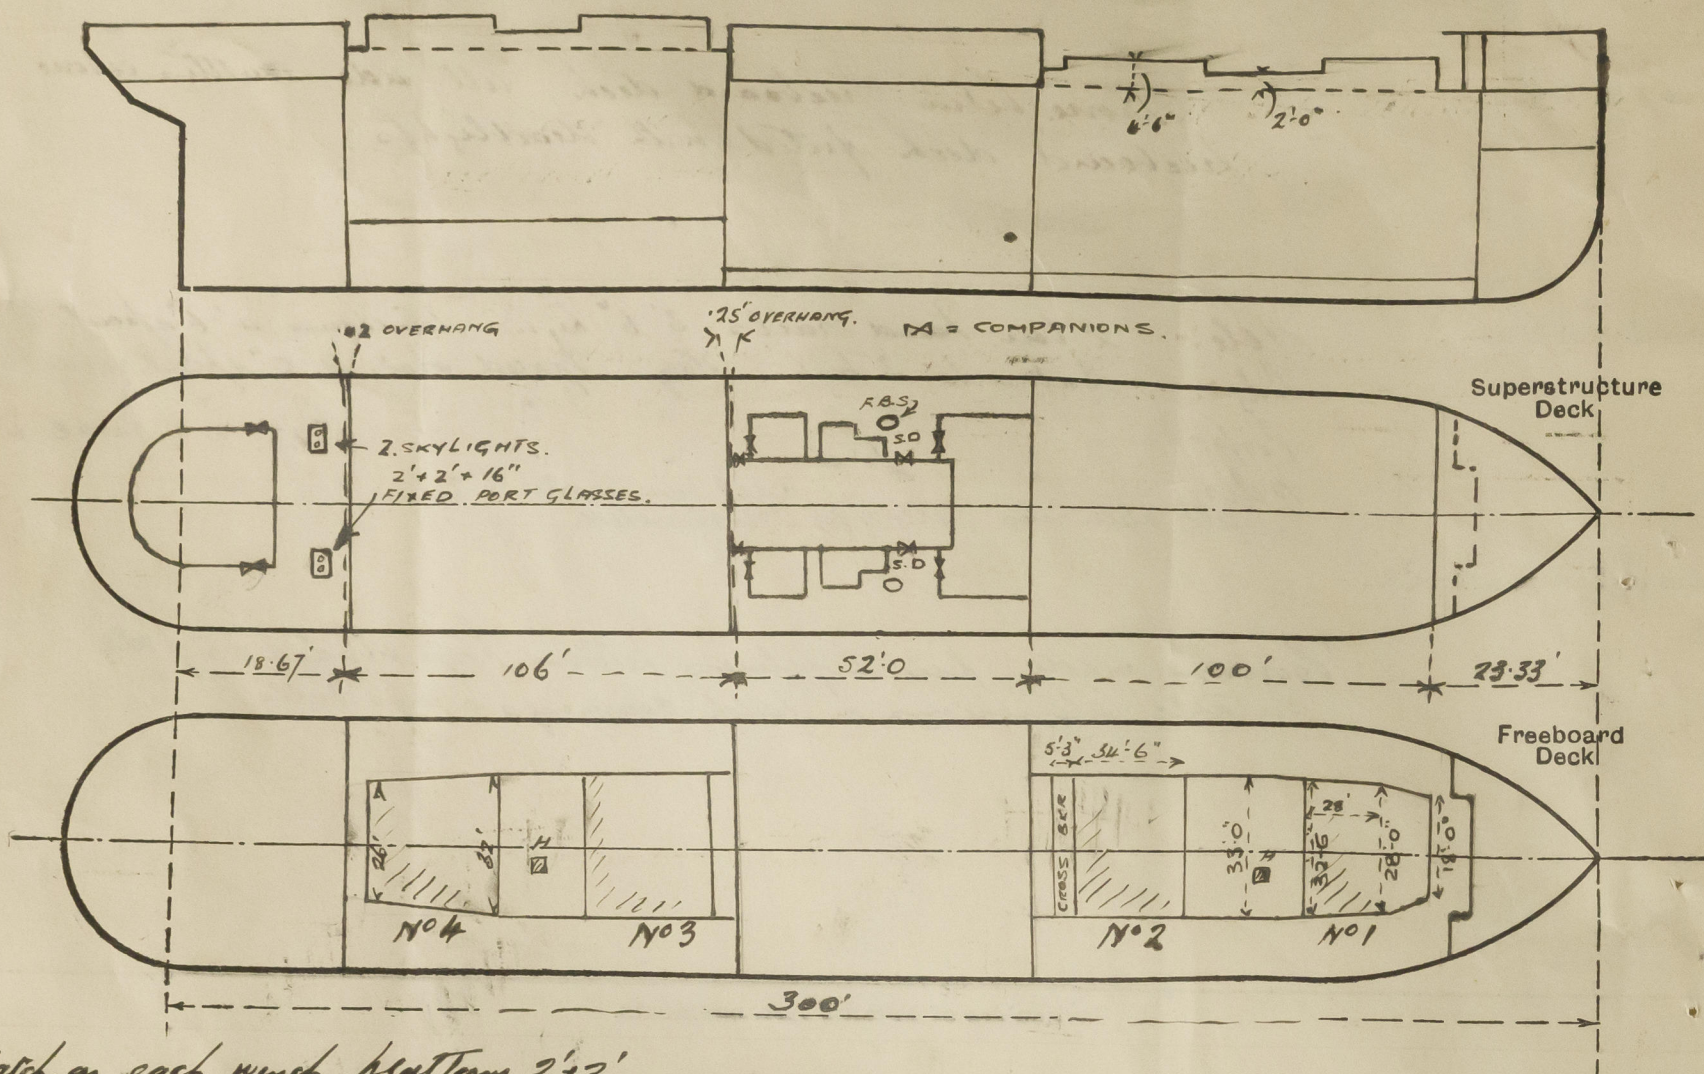 4'-6"
2'-0"
·2 OVERHANG
·25' OVERHANG.
= COMPANIONS.
Superstructure
Deck
F.B.S.
S.D
2. SKYLIGHTS.
2' + 2' + 16"
FIXED PORT GLASSES.
S.D
18·67'
106'
52'·0
100'
23·33'
Freeboard
Deck
5'·3"
34'-6"
CROSS BKR
26'
32'
H
33'-0"
H
32'-6"
28'
28'-0"
18'-0"
No 4
No 3
No 2
No 1
300'
on each winch platform 2'+2'